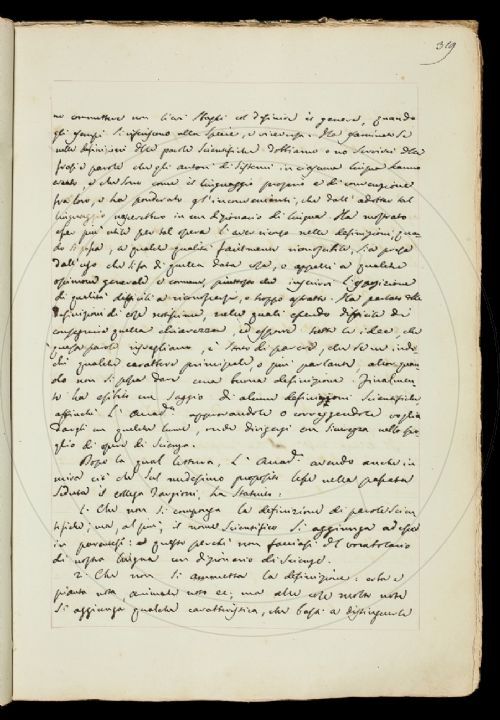 319
ne commettere non lievi sbagli col definire il genere, quando
gli esempi si riferiscono alla specie, e viceversa. Ha esaminato se
nelle definizioni delle parole scientifiche dobbiamo o no servirci delle
frasi e parole che gli autori di sistemi in ciascuna lingua hanno
creato, e che sono come il linguaggio proprio e di convenzione
fra loro, e ha ponderato gl'inconvenienti, che dall'adottar tal
linguaggio in un dizionario di lingua. Ha mostrato
esser più utile per tal opera l'aver riscorso nelle definizioni, quan-
do si possa, a qualche qualità facilmente riconoscibile, sia presa
dall'uso che si fa di quella data cosa, o appelli a qualche
opinione generale e comune, piuttosto che
di qualità difficili a riconoscersi, e troppo astratte. Ha parlato delle
definizioni di cose notissime, nelle quali essendo difficile di
conseguire quella chiarezza, ed esporre tutte le idee, che
queste parole risvegliano, è stato di parere, che se ne indi-
chi qualche carattere principale o più parlante, allor quan-
do non si possa dare una buona definizione. Finalmen-
te ha esibito un saggio di alcune definizioni scientifiche
affinchè l'Accad. approvandole o correggendole voglia
dargli un qualche lume, onde dirigersi con sicurezza nello spo-
glio di opere di scienza.
Dopo la qual lettura, l'Accad. avendo anche in
mira ciò che sul medesimo proposito lesse nella passata
seduta il collega Targioni, ha statuito:
1. Che non si componga la definizione di parole scien-
tifiche; ma, al più, il nome scientifico si aggiunga ad esse
in parentesi: e questo perchè non facciasi del vocabolario
di nostra lingua un dizionario di scienze.
2. Che non si ammetta la definizione: erba e
pianta nota, animale noto ec; ma alle cose molto note
si aggiunga qualche caratteristica, che basti a distinguerle